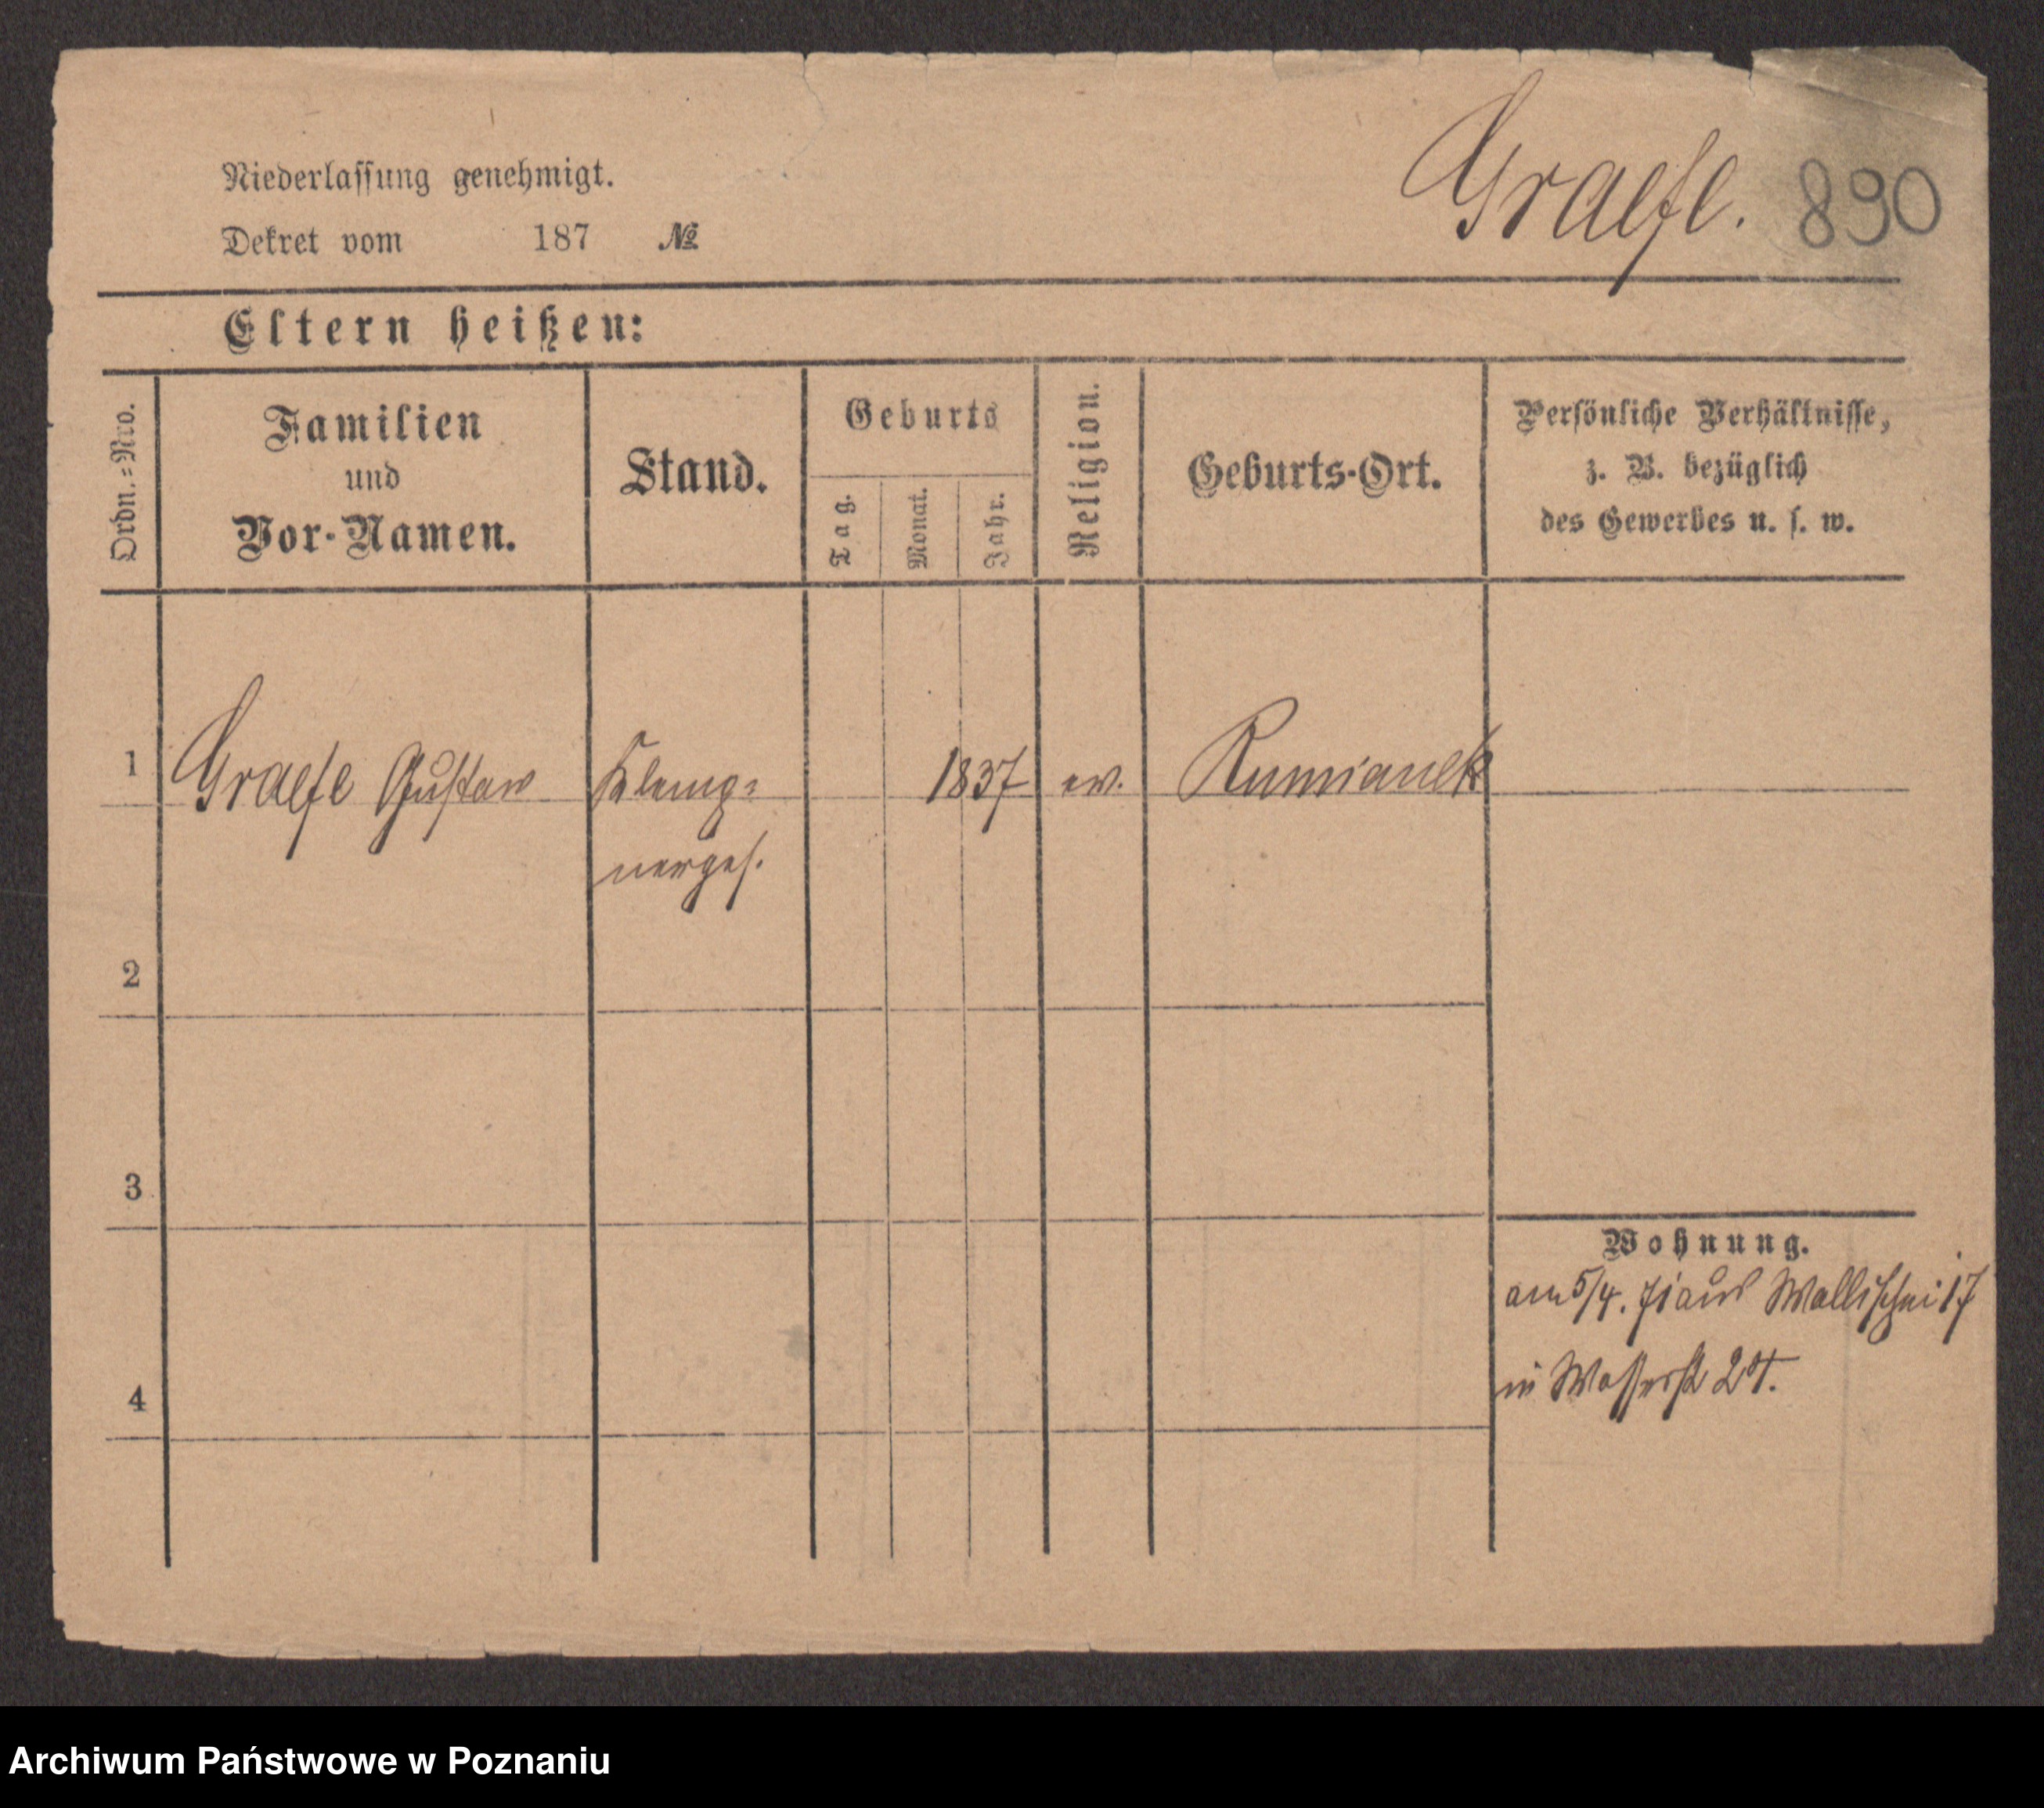 Graefe. 890
Niederlassung genehmigt.
Dekret vom 187 №
Eltern heißen:
Ordn.=Nro.
Familien
und
Vor-Namen.
Stand.
Geburts
Tag.
Monat.
Jahr.
Religion.
Geburts-Ort.
Persönliche Verhältnisse,
z. B. bezüglich
des Gewerbes u. s. w.
1 Graefe Gustav Klemp= 1837 ev. Rumianek
nerges.
2
3
4
Wohnung.
am 5/4. 71 aus Wallischei 17
in Wasserst 24.
Archiwum Państwowe w Poznaniu